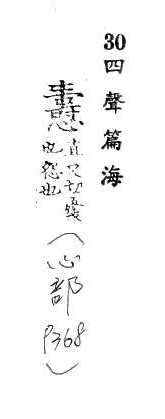 30 四聲篇海
直 切
也怨也
(心部 P368)